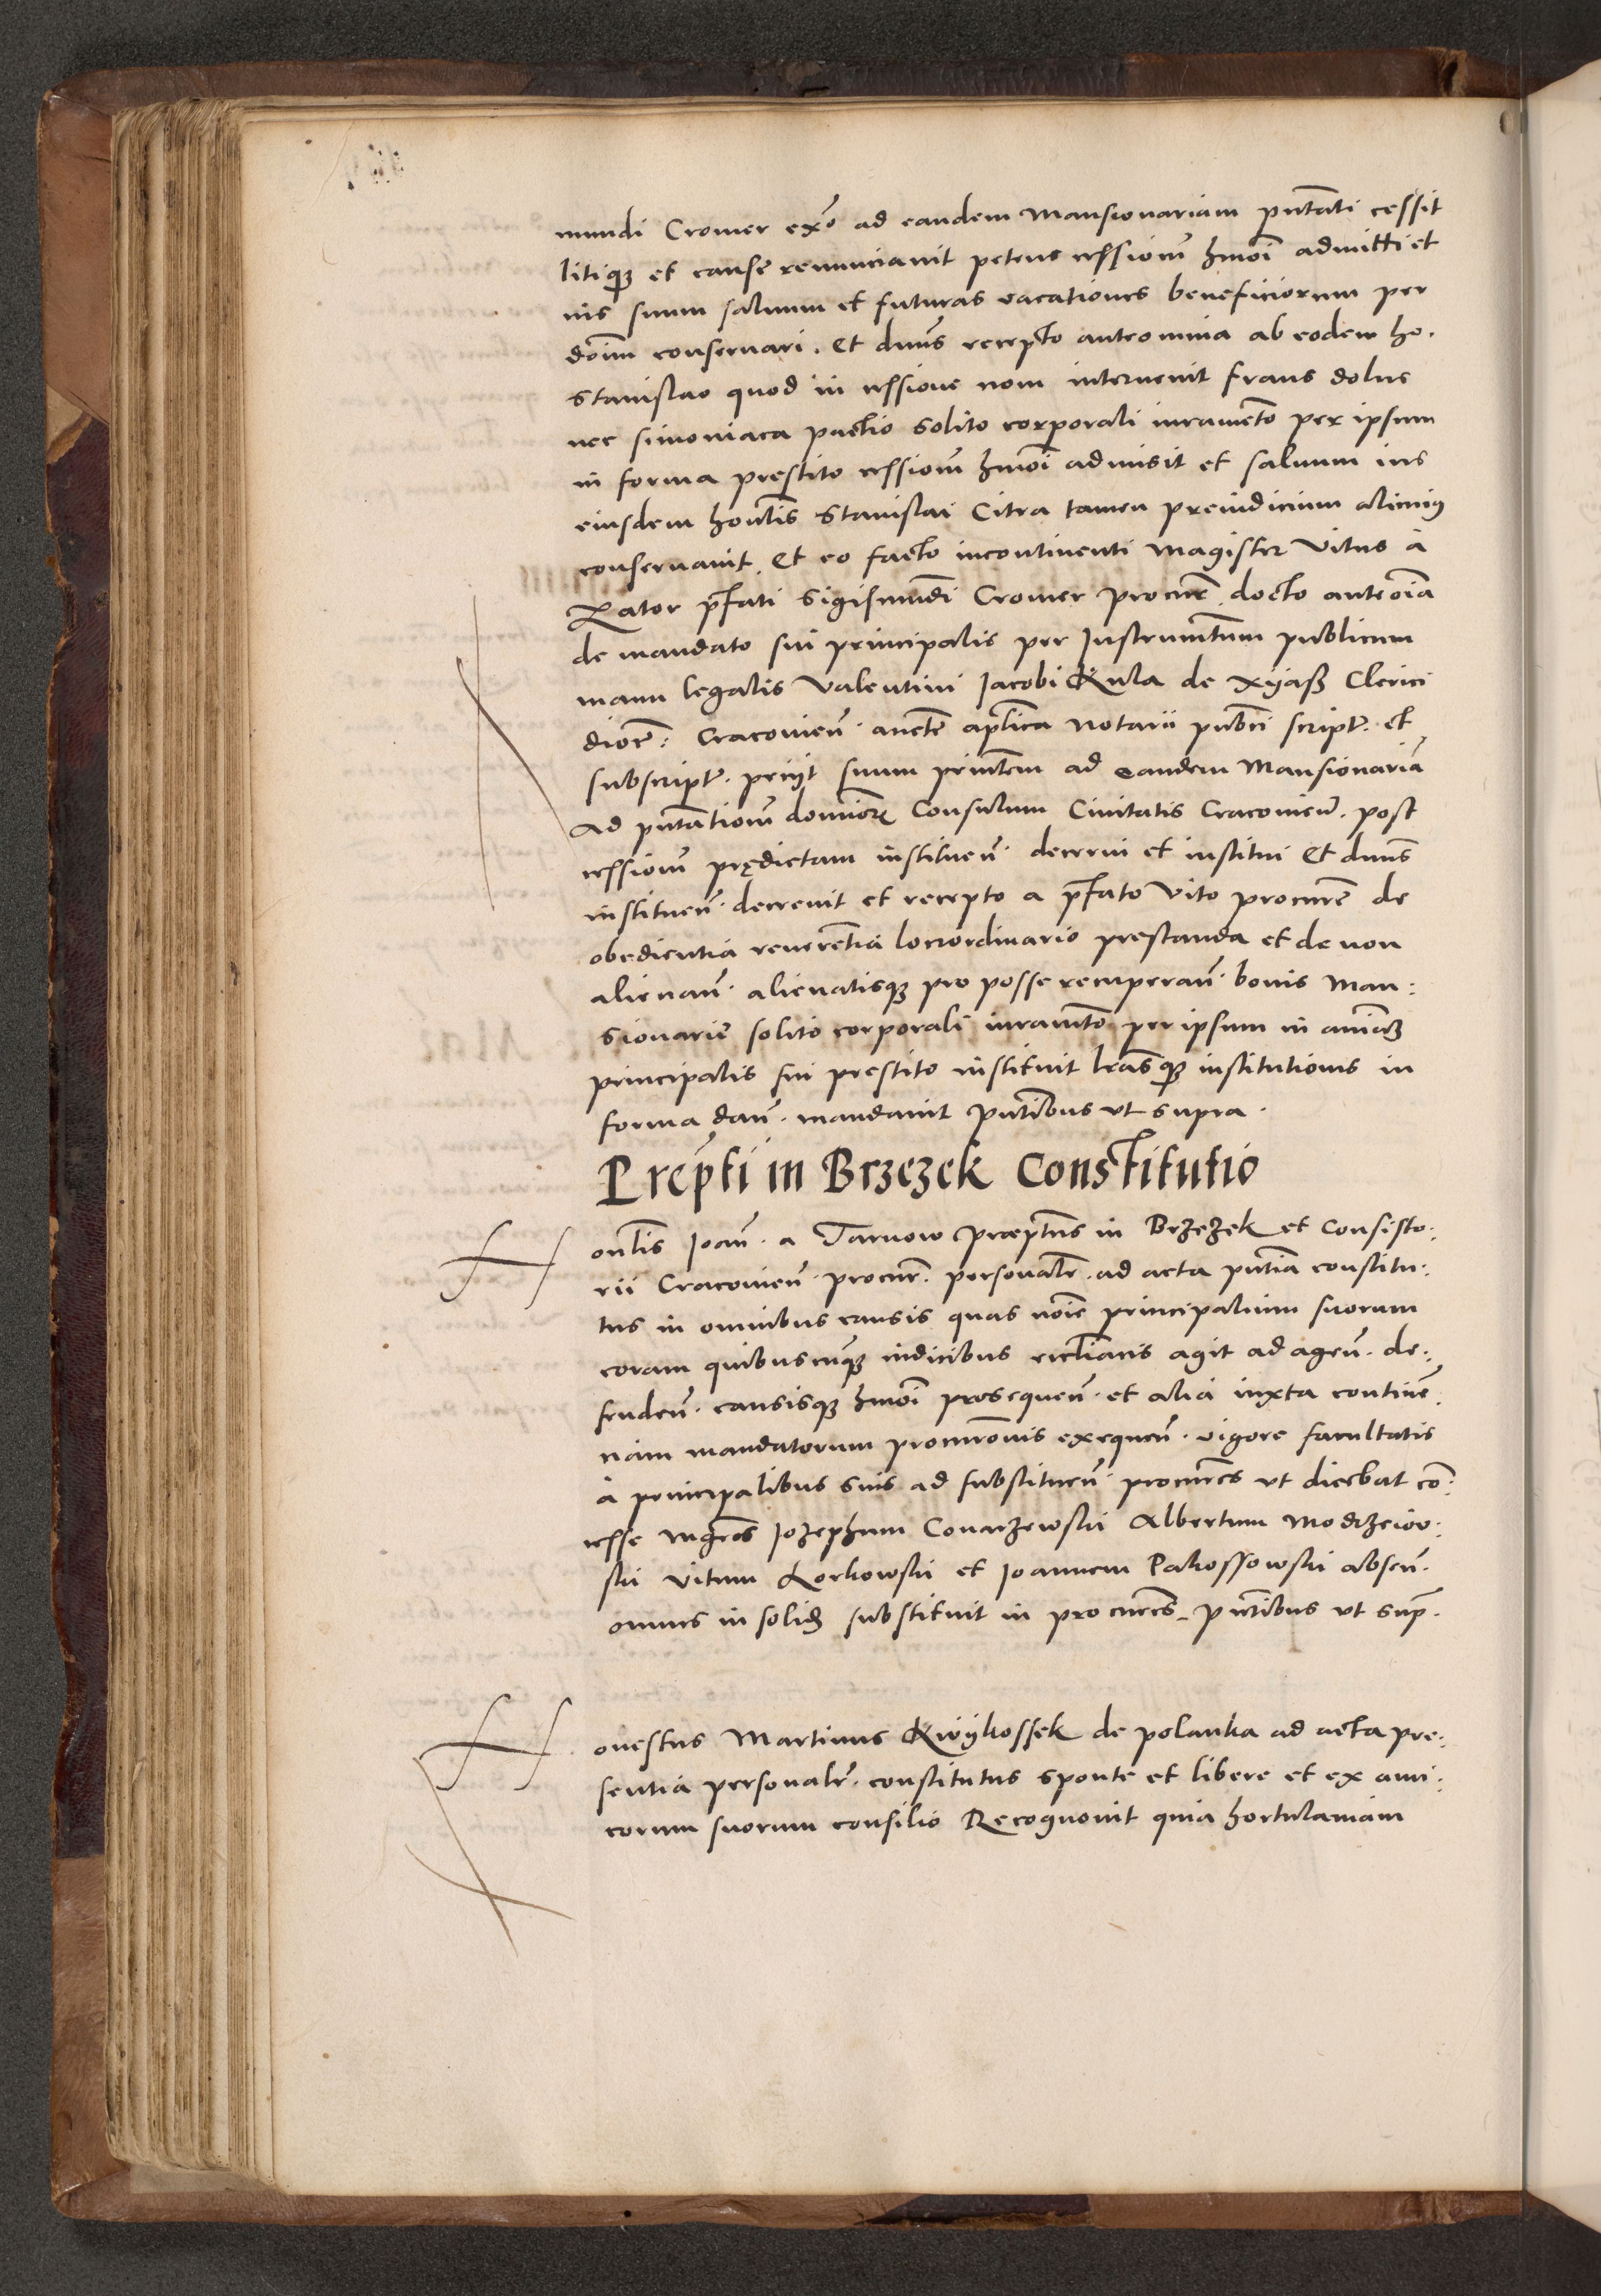 mundi Cromer ex͞o ad eandem Mansionariam p̄ntāti cessit
litiqꝫ et causę renunciavit petens cessiōm hmōi admitti et
ius suum saluum et futuras vacationes beneficiorum per
dōim conseruari. Et dnus̄ recepto anteomnia ab eodem ho.
Stanislao quod in cessione non interuenit fraus dolus
nec simoniaca pactio solito corporali iuramēto per ipsum
in forma prestito cessiom̄ hmōi admisit et saluum ius
eiusdem honlīs Stanislai Citra tamen preiudicium alicuiꝰ
conseruauit. Et eo facto incontinenti Magister Vitus a
Rator p̄fati Sigismūdi Cromer procurē docto anteoīa
de mandato sui principalis per Instrumtum publicum
manu legalis Valentini Jacobi Kula de Xyasß Clerici
diocē: Cracovien̄. aucte ap̄lica Notarii publ̄ci script. et
subscript. petijt suum princ̄tem ad eandem Mansionariā
Ad p̄ntātiom̄ dominor̄ Consulum Ciuitatis Cracovień. post
cessiom̄ prędictam instituen̄. decerni et institui Et dnus̄
instituen̄. decreuit et recepto a p̄fato Vito procurē de
obedientia reuerētia locoordinario prestanda et de non
alienan̄. alienatisqꝫ pro posse recuperan̄. bonis Man:
sionarię solito corporali iuramto per ipsum in animaꝫ
principalis sui prestito instituit lr̄asqꝫ institutionis in
forma dan̄. mandauit p̄ntibus vt supra.
Prep̄ti in Brzezek Constitutio
Honlīs Joan̄. a Tarnow Prep̄tus in Brzezek et Consisto:
rii Cracovien̄. procur̄. personalr̄. ad acta pn̄tia constitu:
tus in omnibus causis quas noīe principalium suorum
coram quibuscunqꝫ iudicibus ecc̄liacis agit ad agen̄. de:
fenden̄. causisqꝫ hmōi prosequen̄. et alia iuxta continē
ciam mandatorum procurōnis exequen̄. vigore facultatis
a principalibus suis ad substituen̄. procures vt dicebat cō:
cesse mgros̄ Jozephum Conarzewski Albertum Modrzeiow:
ski Vitum Korkowski et Joannem Pakossowski absen̄.
omnes in solidꝫ substituit in procures. p̄ntibus vt sup̄.
Honestus Martinus Kwykossek de polanka ad acta pre:
sentia personalr̄. constitutus sponte et libere et ex ami:
corum suorum consilio Recognovit quia hortulaniam